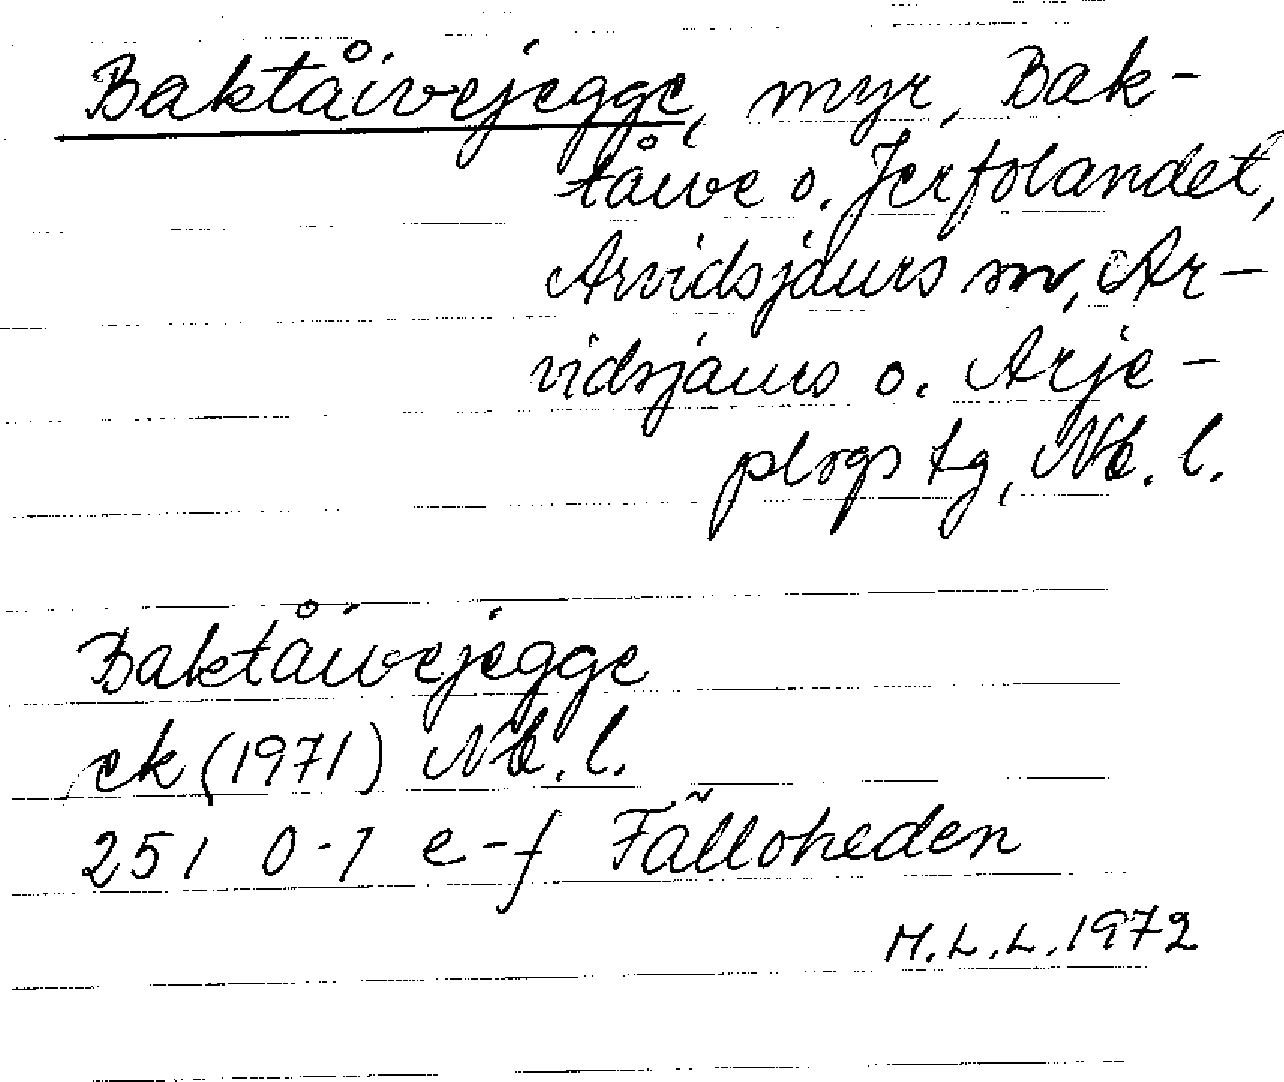 Baktåivejegge, myr, Bak-
tåive o. Jerfolandet,
Arvidsjaurs sn, Ar-
vidsjaurs o. Arje-
plogs tg, Nb. l.
Baktåivejegge
ek (1971) Nb. l.
251 0-1 e-f Fälloheden
M.L.L. 1972